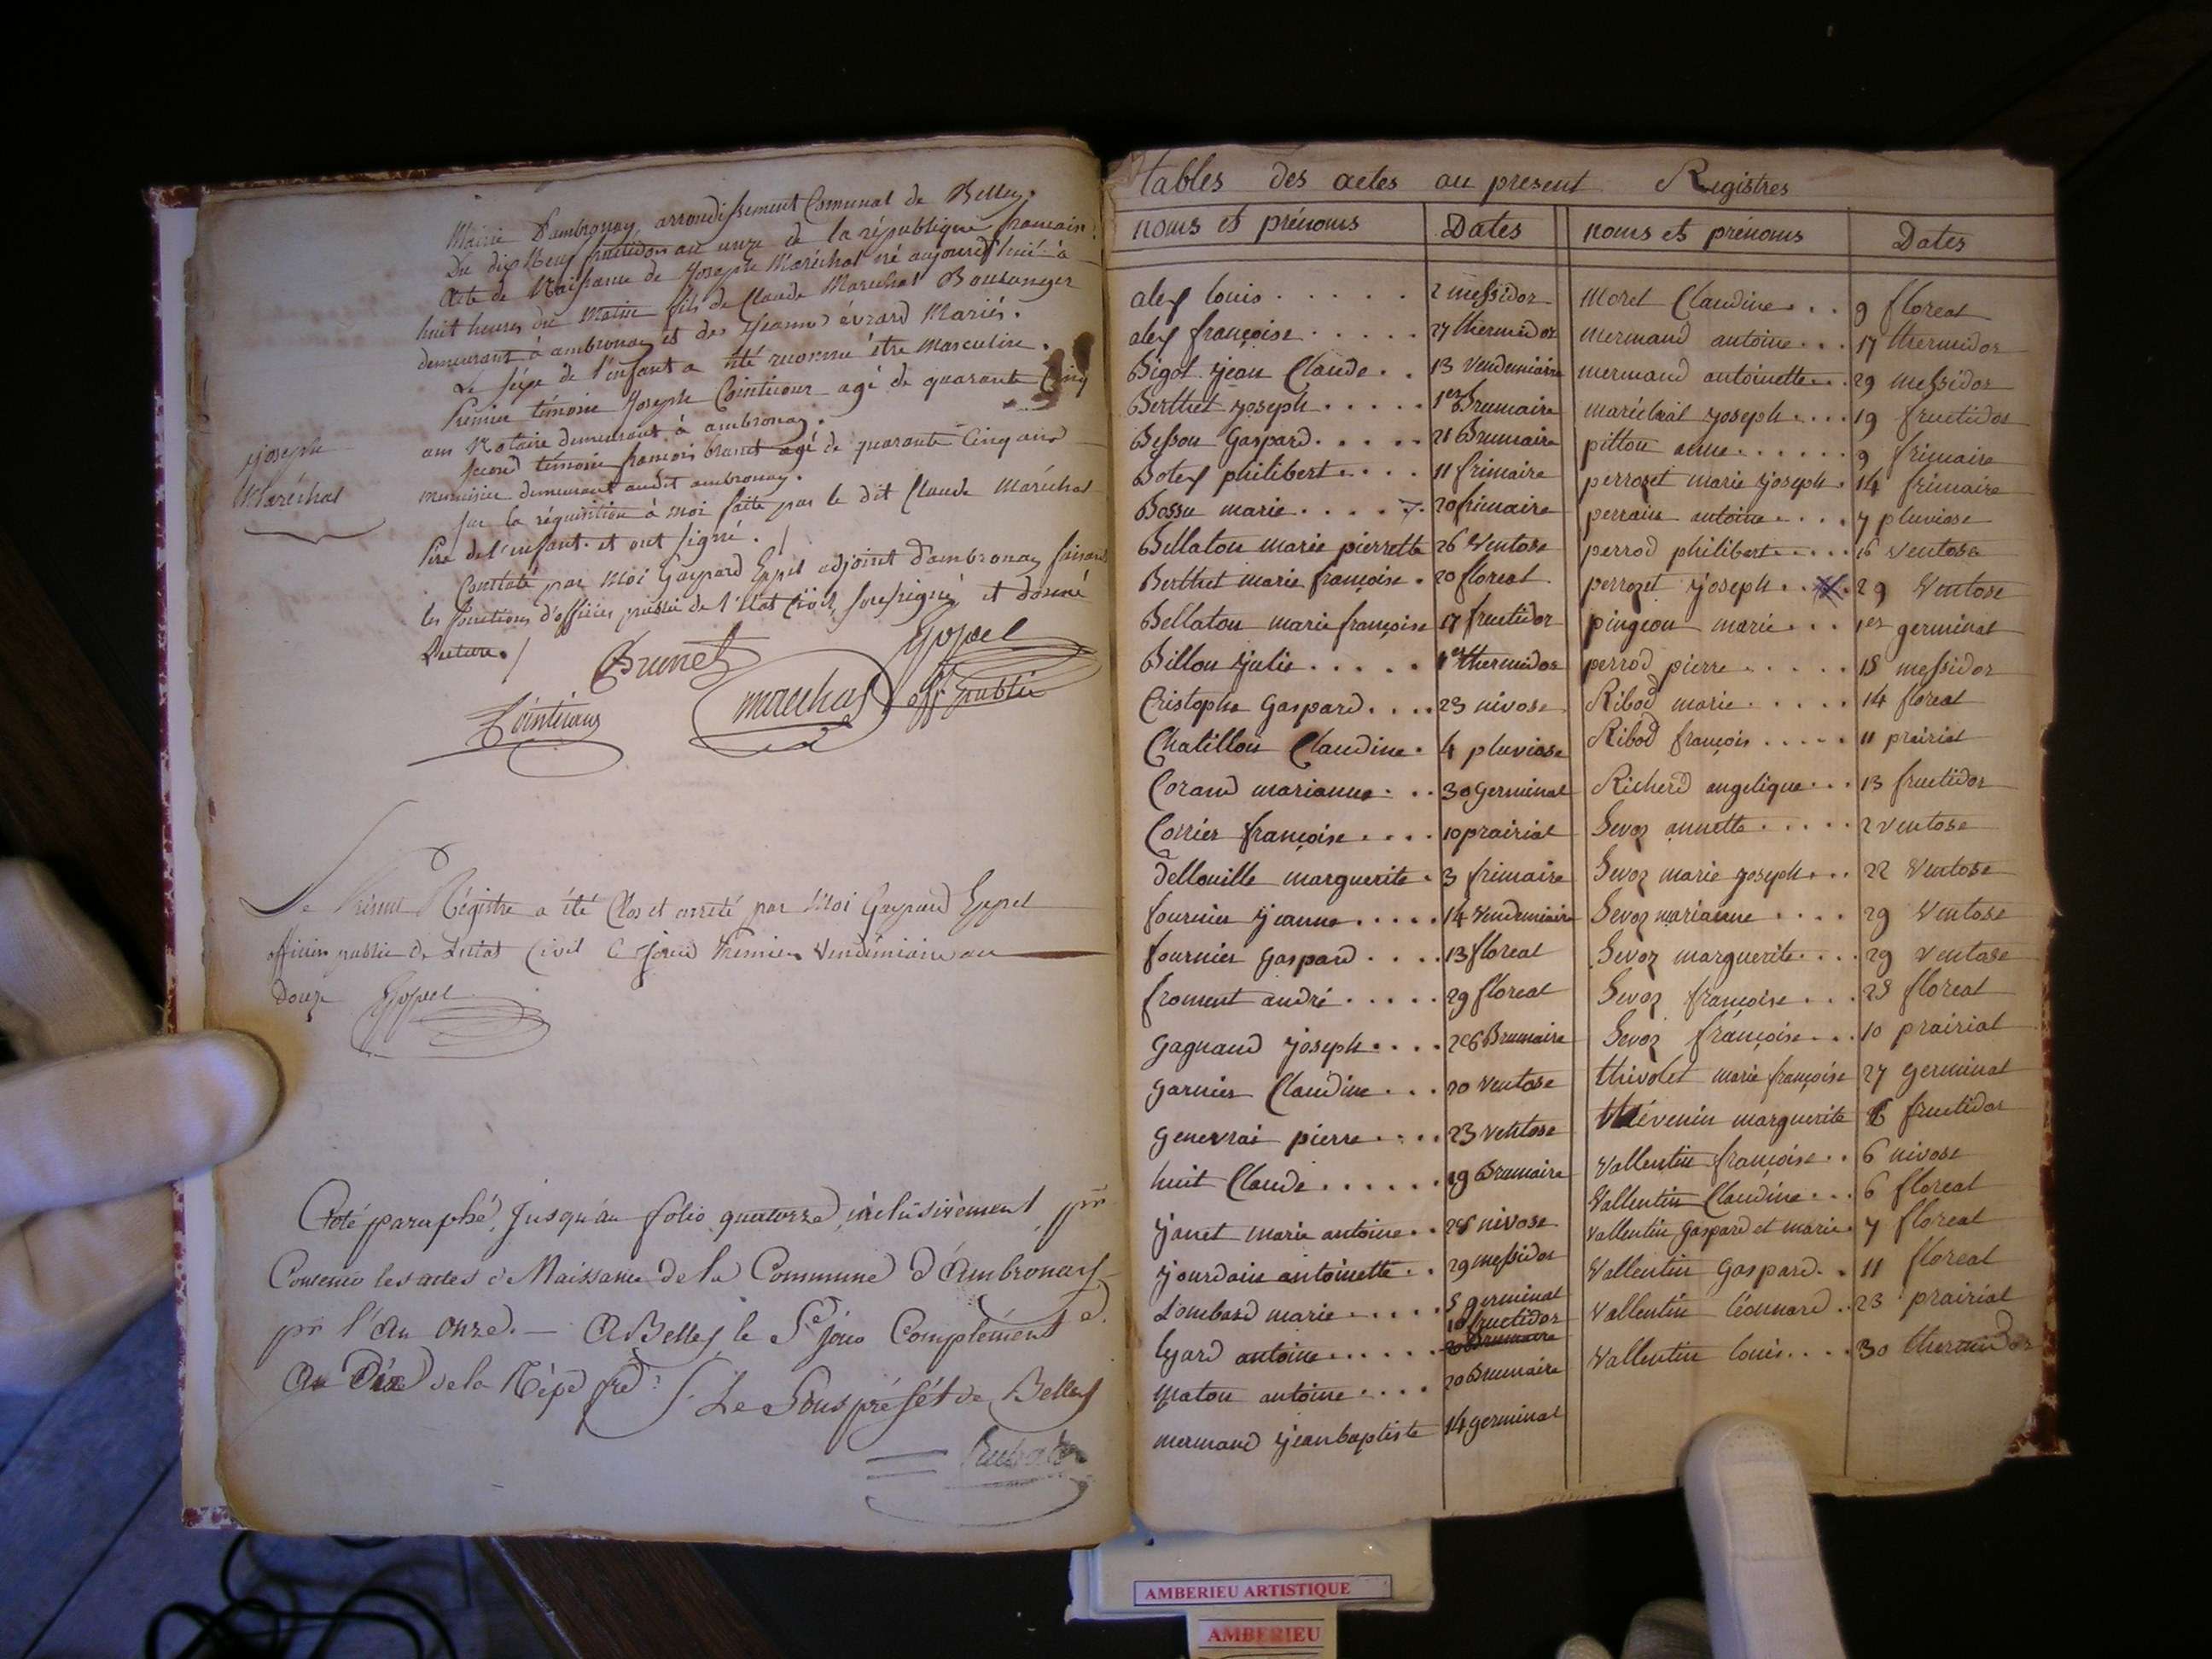 Mairie D'ambronay, arrondissement Comunal de Belley.
Du dix Neuf fructidor an unze de la république francaise.
Acte de Naissance de Joseph Maréchal né aujourd'hui à
huit heures du Matin fils de Claude Maréchal Boulanger
demeurant à ambronay et de Jeanne évrard Mariés.
Le sexe de l'enfant a été reconnu être Masculin.
Premier témoin Joseph Cointicour agé de quarante Cinq
ans Notaire demeurant à ambronay.
Second témoin francois brunet agé de quarante Cinq ans
menuisier demeurant audit ambronay.
Sur la réquisition à moi faite par le dit Claude Maréchal
Père de l'enfant. et ont signé. /
Constaté par Moi Gaspard Eppel adjoint d'ambronay faisant
les fonctions d'officier public de l'état Civil, soussigné, et donné
Lecture. /
joseph
Maréchal
Brunet
Eppel
off. public
marechal
Le Présent Régistre a été Clos et arreté par Moi Gaspard Eppel
officier public de L'etat Civil Ce jourd Premier Vendémiaire an
Douze Eppel
Coté paraphé, Jusqu'au folio quatorze inclusivement, pr
Contenir les actes de Naissance de la Commune d'Ambronay
pr l'An Onze. — A Belley le 5e jour Complément.e
An Dix de la Répe fse /. Le Sous préfét de Belley
tables des actes au present Registres
noms et prénoms Dates noms et prénoms Dates
alex louis . . . . . 2 messidor Moret Claudine . . . 9 floreal
alex françoise . . . . . 27 thermidor Mermand antoine . . . 17 thermidor
Bigot jean Claude . . 13 Vendemiaire mermand antoinette . . 29 messidor
Berthet joseph . . . . . 1er Brumaire maréchal joseph . . . . 19 fructidor
Besson Gaspard . . . . . 21 Brumaire pitton anne . . . . . . 9 frimaire
Botex philibert . . . . 11 frimaire perrozet marie joseph . 14 frimaire
Bossu marie . . . . . 20 frimaire perrain antoine . . . . 7 pluviose
Bellaton marie pierrette 26 Ventose perrod philibert . . . . . 16 ventose
Berthet marie françoise . 20 floreal perrozet joseph . . . 29 Ventose
Bellaton marie françoise 17 fructidor pingeon marie . . . 1er germinal
Billon julie . . . . . 1er thermidor perrod pierre . . . . . 18 messidor
Cristophe Gaspard . . . . 23 nivose Ribod marie . . . . . 14 floreal
Chatillon Claudine . 4 pluviose Ribod françois . . . . . 11 prairial
Corand marianne . . . 30 Germinal Richerd angelique . . . 13 fructidor
Corrier françoise . . . . 10 prairial Sevoz annette . . . . . 2 ventose
dellouille marguerite . 3 frimaire Sevoz marie joseph . . . 22 Ventose
fournier jeanne . . . . . 14 Vendemiaire Sevoz marianne . . . . 29 Ventose
fournier Gaspard . . . . 13 floreal Sevoz marguerite . . . . 29 ventose
froment andré . . . . . 29 floreal Sevoz françoise . . . 28 floreal
Gagnaud joseph . . . . 26 Brumaire Sevoz françoise . . . 10 prairial
Garnier Claudine . . . 20 Ventose thivolet marie françoise 27 germinal
Genevrai pierre . . . . 23 ventose thévenin marguerite 6 fructidor
huit Claude . . . . . . 19 Brumaire Vallentin françoise . . 6 nivose
Vallentin Claudine . . . 6 floreal
janet marie antoine . . 28 nivose vallentin Gaspard et marie . 7 floreal
jourdain antoinette . . 29 messidor Vallentin Gaspard . . 11 floreal
Lombard marie . . . . . 5 germinal Vallentin léonnard . . 23 prairial
lyard antoine . . . . . . 10 fructidor Vallentin louis . . . . 30 thermidor
maton antoine . . . . 20 Brumaire
mermand jean baptiste 14 germinal
AMBERIEU ARTISTIQUE
AMBERIEU